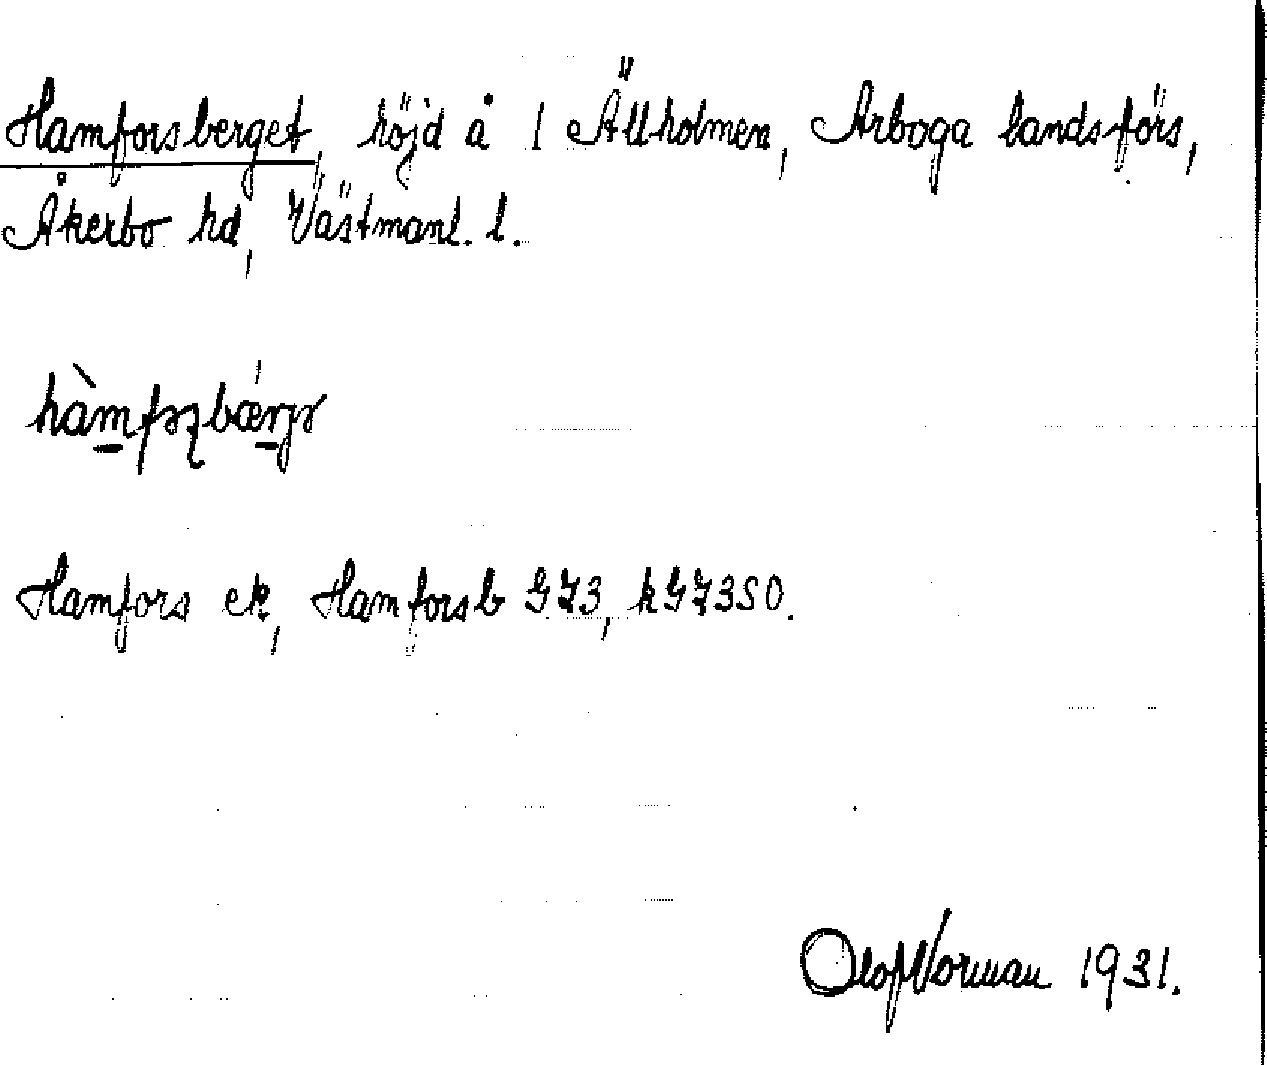 Hamforsberget, höjd å 1 Ällholmen, Arboga landsförs,
Åkerbo hd, Västmanl. l.
Hamfors ek, Hamforsb GZ3, kGZ3SO.
Olof Norman 1931.